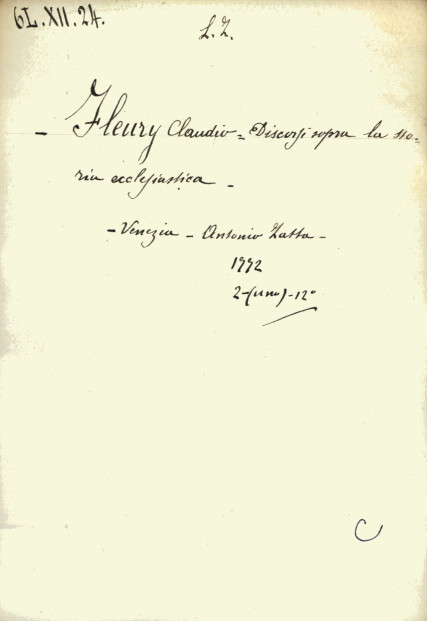 6L.XII.24.
L.Z.
- Fleury Claudio = Discorsi sopra la sto-
ria ecclesiastica -
- Venezia - Antonio Zatta -
1772
2-(uno)-12°
C